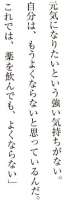 「元気になりたいという強い気持ちがない。
自分は、もうよくならないと思っているんだ。
これでは、薬を飲んでも、よくならない」